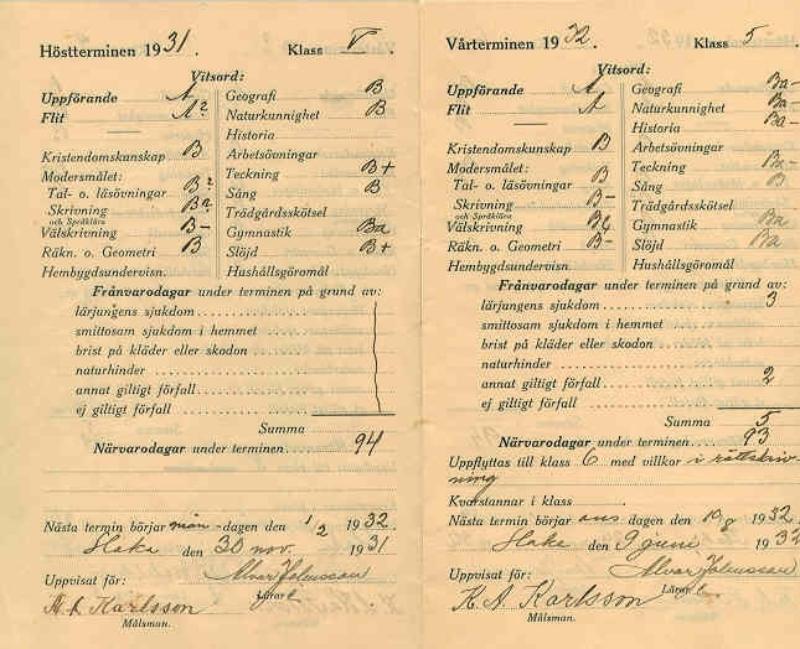 Höstterminen 1931. Klass V.
Vitsord:
Uppförande A
Flit A?
Kristendomskunskap B
Modersmålet:
Tal- o. läsövningar B?
Skrivning B?
och Språklära
Välskrivning B-
Räkn. o. Geometri B
Hembygdsundervisn.
Geografi B
Naturkunnighet B
Historia
Arbetsövningar
Teckning B+
Sång B
Trädgårdsskötsel
Gymnastik Ba
Slöjd B+
Hushållsgöromål
Frånvarodagar under terminen på grund av:
lärjungens sjukdom
smittosam sjukdom i hemmet
brist på kläder eller skodon
naturhinder
annat giltigt förfall
ej giltigt förfall
Summa
Närvarodagar under terminen 94
Nästa termin börjar mån-dagen den 1/2 1932.
Slaka den 30 nov. 1931
Uppvisat för: Alvar Johnsson
Lärare.
K. A. Karlsson
Målsman.
Vårterminen 1932. Klass 5.
Vitsord:
Uppförande A
Flit A
Kristendomskunskap B
Modersmålet:
Tal- o. läsövningar B
Skrivning B-
och Språklära
Välskrivning
Räkn. o. Geometri B-
Hembygdsundervisn.
Geografi Ba-
Naturkunnighet Ba-
Historia Ba-
Arbetsövningar
Teckning Ba-
Sång B
Trädgårdsskötsel
Gymnastik Ba
Slöjd Ba
Hushållsgöromål
Frånvarodagar under terminen på grund av:
lärjungens sjukdom 3
smittosam sjukdom i hemmet
brist på kläder eller skodon
naturhinder
annat giltigt förfall 2
ej giltigt förfall
Summa 5
Närvarodagar under terminen 93
Uppflyttas till klass 6 med villkor i rättskriv-
ning
Kvarstannar i klass
Nästa termin börjar ons dagen den 10/8 1932.
Slaka den 9 juni 1932
Uppvisat för: Alvar Johnsson
Lärare.
K. A. Karlsson
Målsman.